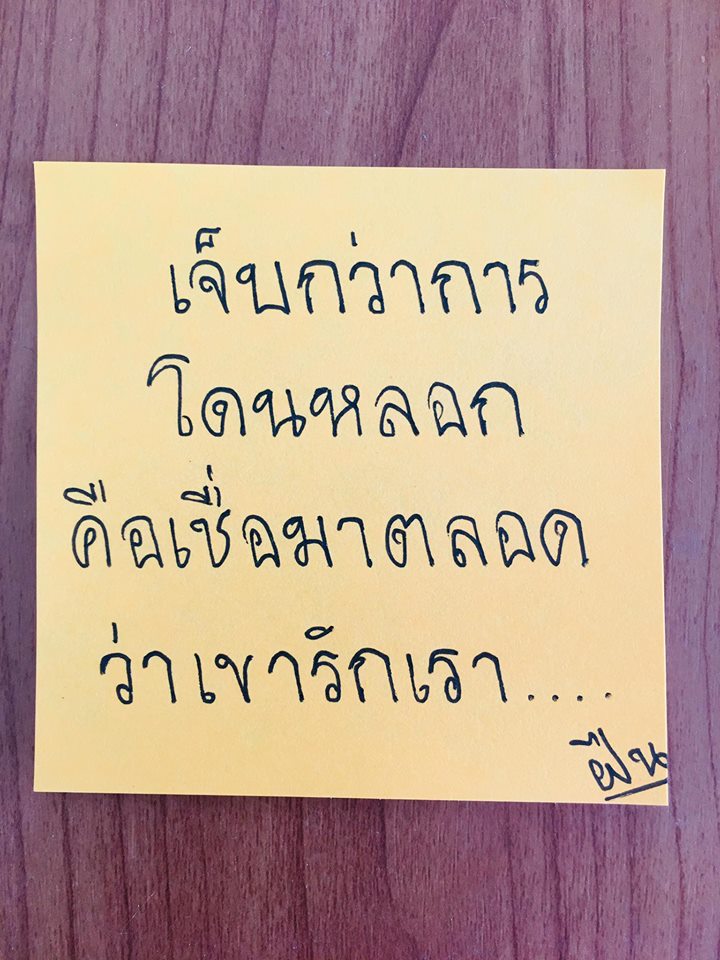 เจ็บกว่าการ
โดนหลอก
คือเชื่อมาตลอด
ว่าเขารักเรา....
ฝืน